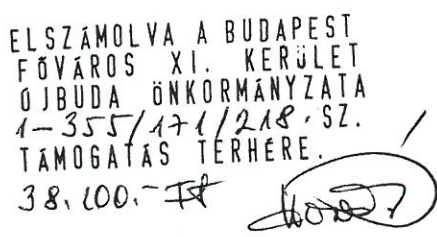 ELSZÁMOLVA A BUDAPEST
FŐVÁROS XI. KERÜLET
ÚJBUDA ÖNKORMÁNYZATA
1-355/171/218. SZ.
TÁMOGATÁS TERHÉRE.
38.100.- Ft